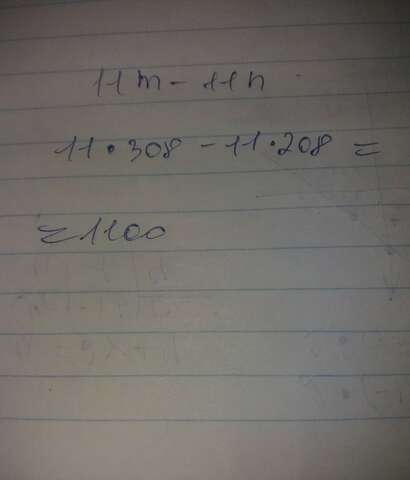 11m - 11n
11 • 308 - 11 • 208 =
= 1100